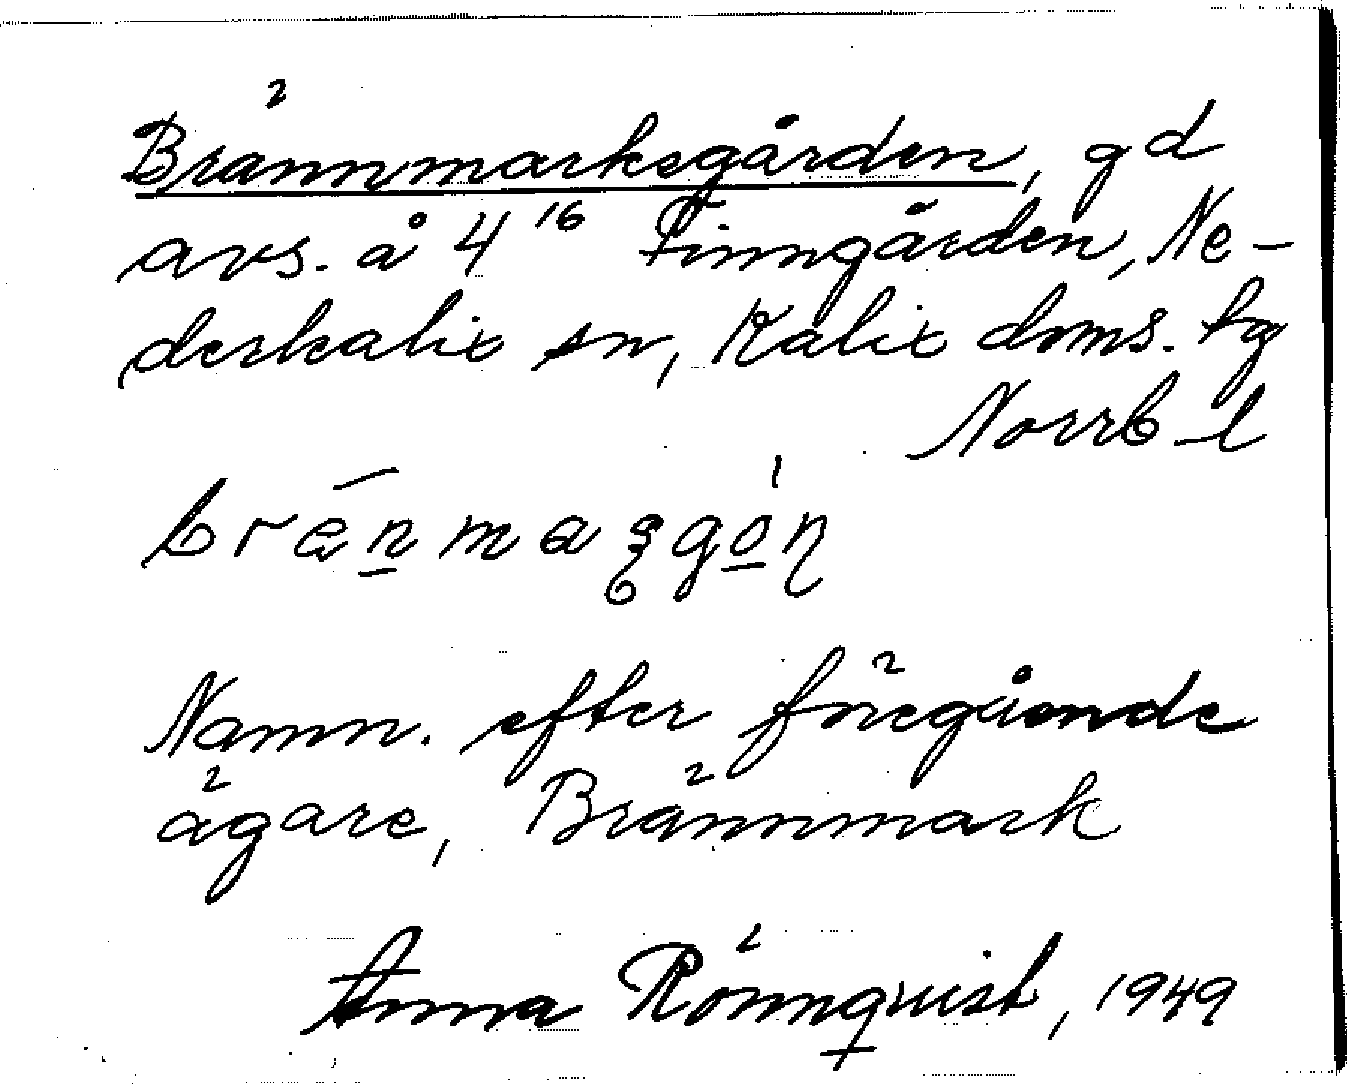 Brännmarksgården, gd
avs. å 4¹⁶ Finngården, Ne-
derkalix sn, Kalix doms. hg
Norrb l
Namn. efter föregående
ägare, Brännmark
Anna Rönnquist, 1949